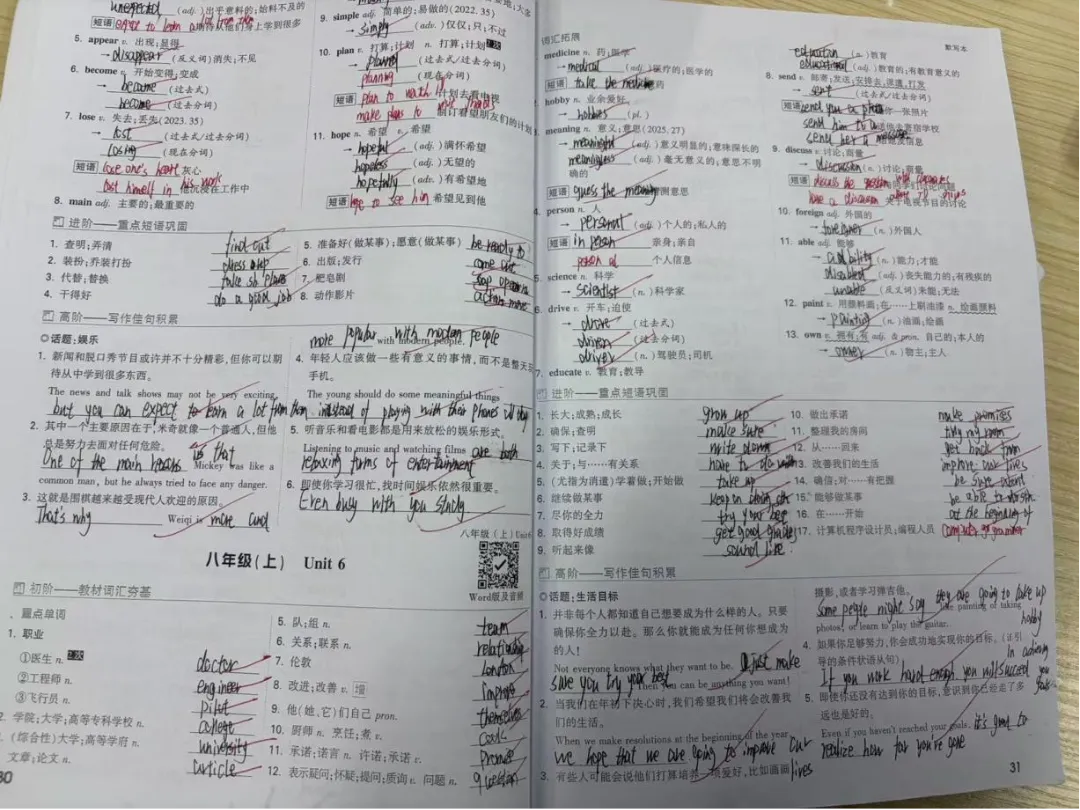 unexpected (adj.) 出乎意料的;始料不及的
短语 期待从他们身上学到很多
5. appear v. 出现;显得
→ disappear (反义词)消失;不见
6. become v. 开始变得;变成
→ became (过去式)
→ become (过去分词)
7. lose v. 失去;丢失(2023.35)
→ lost (过去式/过去分词)
losing (现在分词)
短语 lose one's heart 灰心
lost himself in his work 他沉浸在工作中
8. main adj. 主要的;最重要的
进阶——重点短语巩固
1. 查明;弄清 find out
2. 装扮;乔装打扮 dress up
3. 代替;替换 take sb place
4. 干得好 do a good job
高阶——写作佳句积累
◎话题:娱乐
1. 新闻和脱口秀节目或许并不十分精彩,但你可以期
待从中学到很多东西。
The news and talk shows may not be very exciting,
but you can expect to learn a lot from them.
2. 其中一个主要原因在于,米奇就像一个普通人,但他
总是努力去面对任何危险。
One of the main reasons is that Mickey was like a
common man, but he always tried to face any danger.
3. 这就是围棋越来越受现代人欢迎的原因。
That's why Weiqi is more and
more popular with modern people
with modern people.
9. simple adj. 简单的;易做的(2022.35)
→ simply (adv.) 仅仅;只;不过
10. plan v. 打算;计划 n. 打算;计划
→ planned (过去式/过去分词)
planning (现在分词)
短语 plan to watch 计划去看电视
make plans to 制订看望朋友们的计划
11. hope n. 希望 v. 希望
→ hopeful (adj.) 满怀希望
hopeless (adj.) 无望的
hopefully (adv.) 有希望地
短语 hope to see him 希望见到他
5. 准备好(做某事);愿意(做某事) be ready to
6. 出版;发行 come out
7. 肥皂剧 soap opera
8. 动作影片 action movie
4. 年轻人应该做一些有意义的事情,而不是整天玩
手机。
The young should do some meaningful things
instead of playing with their phones all day
5. 听音乐和看电影都是用来放松的娱乐形式。
Listening to music and watching films are both
relaxing forms of entertainment
6. 即使你学习很忙,找时间娱乐依然很重要。
Even busy with you study
八年级(上) Unit
八年级(上) Unit 6
Word版及音频
初阶——教材词汇夯基
重点单词
1. 职业
①医生 n. doctor
②工程师 n. engineer
③飞行员 n. pilot
2. 学院;大学;高等专科学校 n. college
(综合性)大学;高等学府 n. university
文章;论文 n. article
5. 队;组 n. team
6. 关系;联系 n. relationship
7. 伦敦 London
8. 改进;改善 v. 增 improve
9. 他(她、它)们自己 pron. themselves
10. 厨师 n. 烹饪;煮 v. cook
11. 承诺;诺言 n. 许诺;承诺 v. promise
12. 表示疑问;怀疑;提问;质询 v. 问题 n. question
30
词汇拓展
默写本
medicine n. 药;医学
→ medical (adj.)医疗的;医学的
短语 take the medicine 药
hobby n. 业余爱好
→ hobbies (pl.)
3. meaning n. 意义;意思(2025.27)
→ meaningful (adj.) 意义明显的;意味深长的
meaningless (adj.) 毫无意义的;意思不明
确的
短语 guess the meaning 猜测意思
4. person n. 人
→ personal (adj.) 个人的;私人的
短语 in person 亲身;亲自
personal 个人信息
5. science n. 科学
→ scientist (n.) 科学家
6. drive v. 开车;迫使
→ drove (过去式)
driven (过去分词)
driver (n.) 驾驶员;司机
7. educate v. 教育;教导
education (n.) 教育
educational (adj.) 教育的;有教育意义的
8. send v. 邮寄;发送;安排去;派遣;打发
→ sent (过去式/过去分词)
短语 send you a photo 你一张照片
send him to a 送他去寄宿学校
send her a message 给她发信息
9. discuss v. 讨论;商量
→ discussion (n.) 讨论;商量
短语 discuss the question with 与同学们讨论问题
have a discussion 关于电视节目的讨论
10. foreign adj. 外国的
→ foreigner (n.) 外国人
11. able adj. 能够
→ (n.) 能力;才能
disabled (adj.) 丧失能力的;有残疾的
unable (反义词)未能;无法
12. paint v. 用颜料画;在……上刷油漆 n. 绘画颜料
→ painting (n.) 油画;绘画
13. own v. 拥有;有 adj. & pron. 自己的;本人的
→ owner (n.) 物主;主人
进阶——重点短语巩固
1. 长大;成熟;成长 grow up
2. 确保;查明 make sure
3. 写下;记录下 write down
4. 关于;与……有关系 have to do with
5. (尤指为消遣)学着做;开始做 take up
6. 继续做某事 keep on doing sth
7. 尽你的全力 try your best
8. 取得好成绩 get good grades
9. 听起来像 sound like
10. 做出承诺 make promises
11. 整理我的房间 tidy my room
12. 从……回来 get back from
13. 改善我们的生活 improve our lives
14. 确信;对……有把握 be sure about
15. 能够做某事 be able to do sth
16. 在……开始 at the beginning of
17. 计算机程序设计员;编程人员 computer programmer
高阶——写作佳句积累
◎话题:生活目标
1. 并非每个人都知道自己想要成为什么样的人。只要
确保你全力以赴。那么你就能成为任何你想成为
的人!
Not everyone knows what they want to be. Just make
sure you try your best Then you can be anything you want!
2. 当我们在年初下决心时,我们希望我们将会改善我
们的生活。
When we make resolutions at the beginning of the year
we hope that we are going to improve our
lives
3. 有些人可能会说他们打算培养一项爱好,比如画画
摄影,或者学习弹吉他。
Some people might say they are going to take up
hobby
like painting or taking
photos, or learn to play the guitar.
4. 如果你足够努力,你会成功地实现你的目标。(if引
导的条件状语从句)
If you work hard enough you will succeed
In achieving
you goals.
5. 即使你还没有达到你的目标,意识到你已经走了多
远也是好的。
Even if you haven't reached your goals, it's good to
realize how far you're gone
31